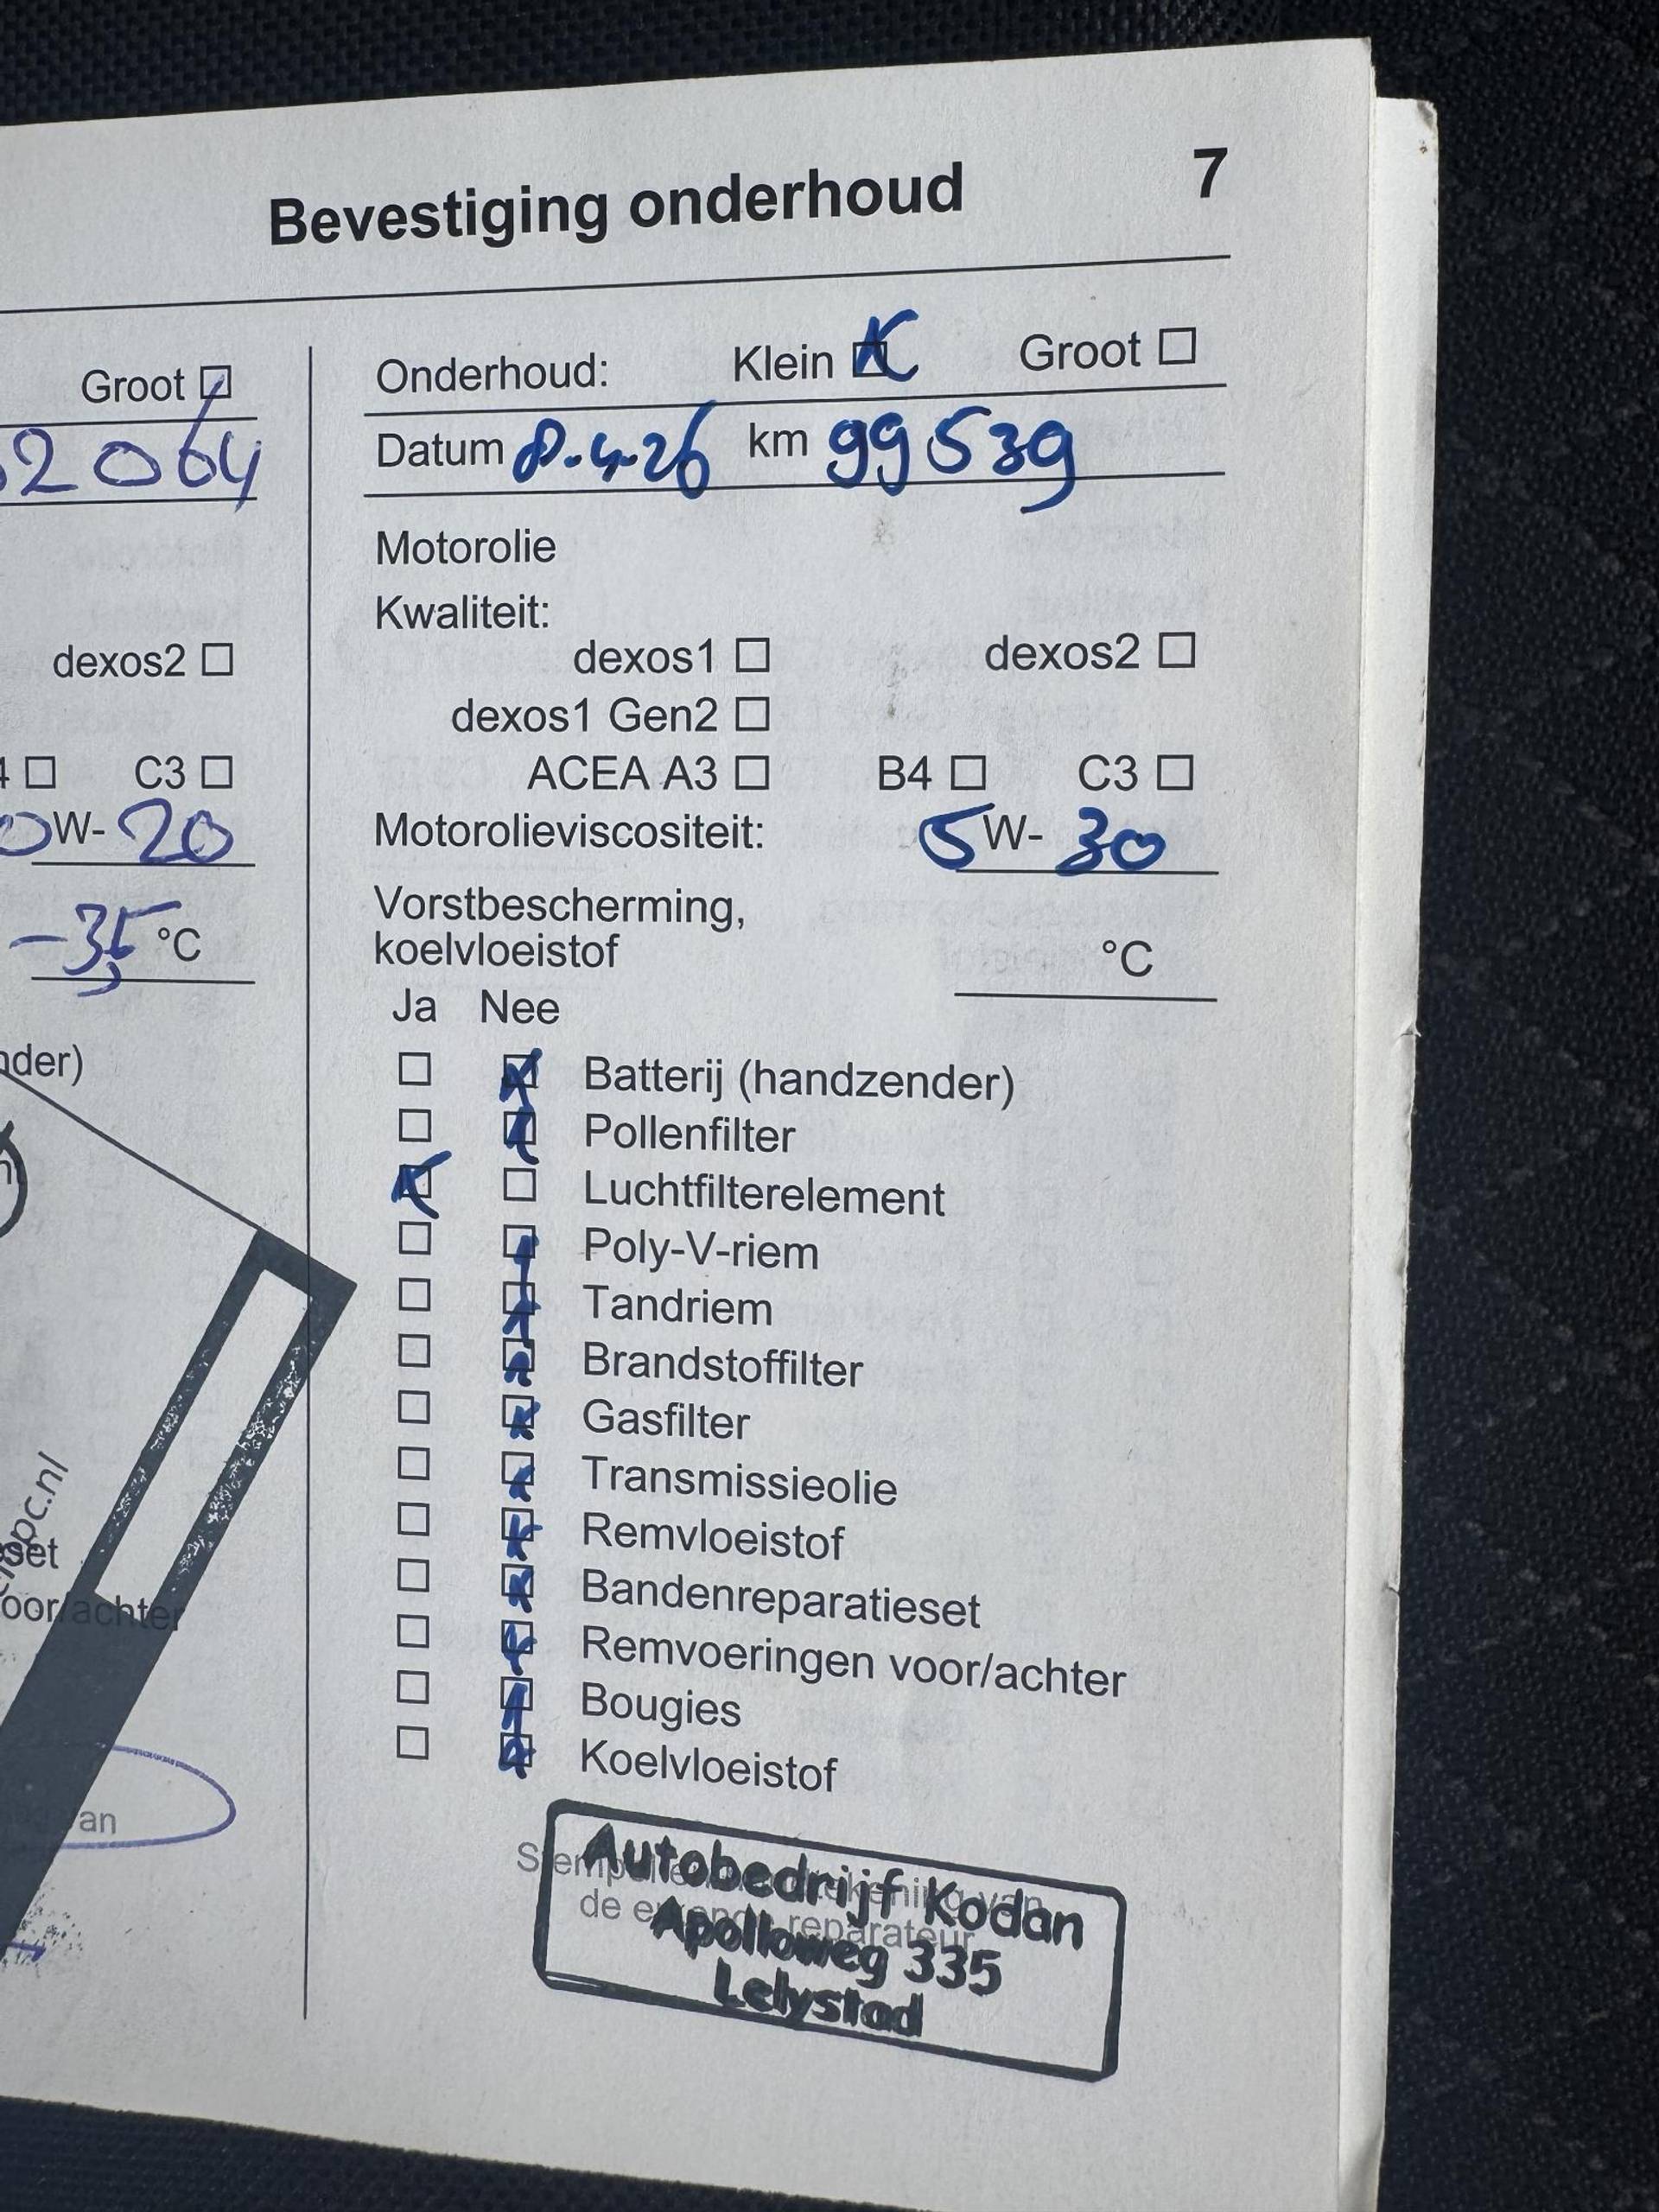 Bevestiging onderhoud 7
Groot
2064
dexos2
C3
0W-20
-35 °C
nder)
set
oor/achter
an
Onderhoud: Klein Groot
Datum 8.4.26 km 99539
Motorolie
Kwaliteit:
dexos1 dexos2
dexos1 Gen2
ACEA A3 B4 C3
Motorolieviscositeit: 5W-30
Vorstbescherming,
koelvloeistof °C
Ja Nee
Batterij (handzender)
Pollenfilter
Luchtfilterelement
Poly-V-riem
Tandriem
Brandstoffilter
Gasfilter
Transmissieolie
Remvloeistof
Bandenreparatieset
Remvoeringen voor/achter
Bougies
Koelvloeistof
Autobedrijf Kodan
Apolloweg 335
Lelystad